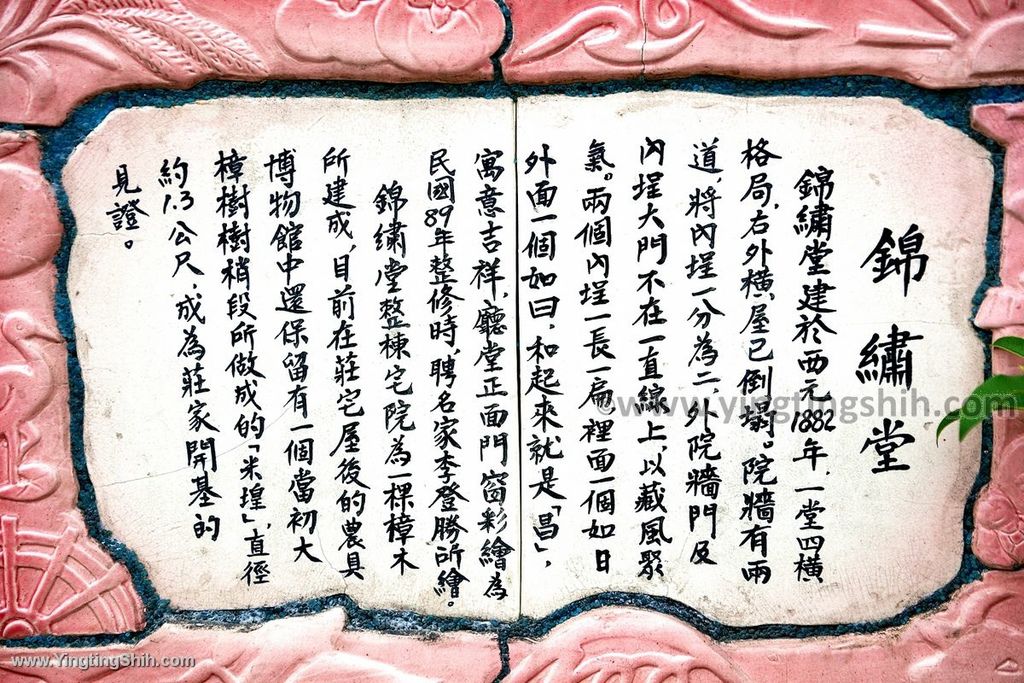 錦繡堂
錦繡堂建於西元1882年,一堂四橫
格局,右外橫屋已倒塌。院牆有兩
道,將內埕一分為二,外院牆門及
內埕大門不在一直線上,以藏風聚
氣。兩個內埕一長一扁,裡面一個如日
外面一個如曰,和起來就是「昌」,
寓意吉祥,廳堂正面門,窗彩繪為
民國89年整修時,聘名家李登勝所繪。
錦繡堂整棟宅院為一棵樟木
所建成,目前在莊宅屋後的農具
博物館中還保留有一個當初大
樟樹樹梢段所做成的「米埕」,直徑
約1.3公尺,成為莊家開基的
見證。
©www.yingtingshih.com
www.YingtingShih.com